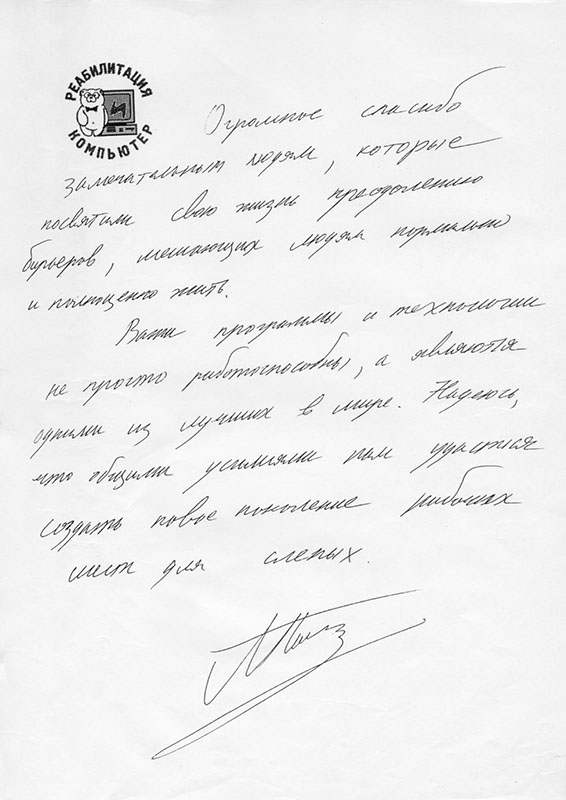 РЕАБИЛИТАЦИЯ
КОМПЬЮТЕР
Огромное спасибо
замечательным людям, которые
посвятили свою жизнь преодолению
барьеров, мешающих людям нормально
и полноценно жить.
Ваши программы и технологии
не просто работоспособны, а являются
одними из лучших в мире. Надеюсь,
что общими усилиями нам удастся
создать новое поколение рабочих
мест для слепых.